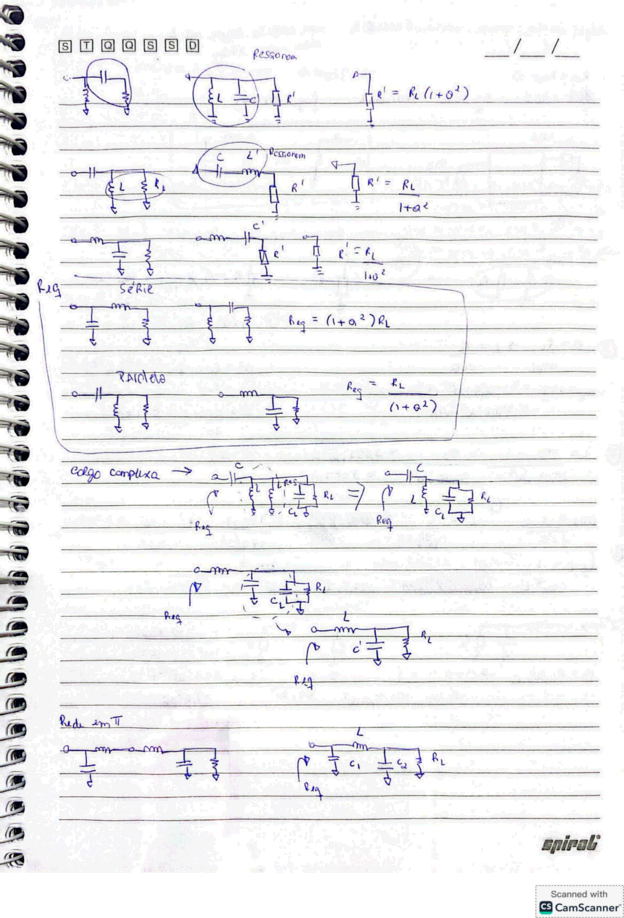 S T Q Q S S D
__/__/__
Ressonam
L C' R'
R' = RL (1+Q²)
L RL
C L' Ressonam
R'
R' = RL / 1+Q²
C'
R'
R' = RL / 1+Q²
Req
Série
Req = (1+Q²) RL
Paralelo
Req = RL / (1+Q²)
Carga complexa →
C L L RES CL RL
Req
⇒
C L CL RL
Req
CL RL
Req
L C' RL
Req
Rede em π
L
C1 C2 RL
Req
spiral
Scanned with
CS CamScanner